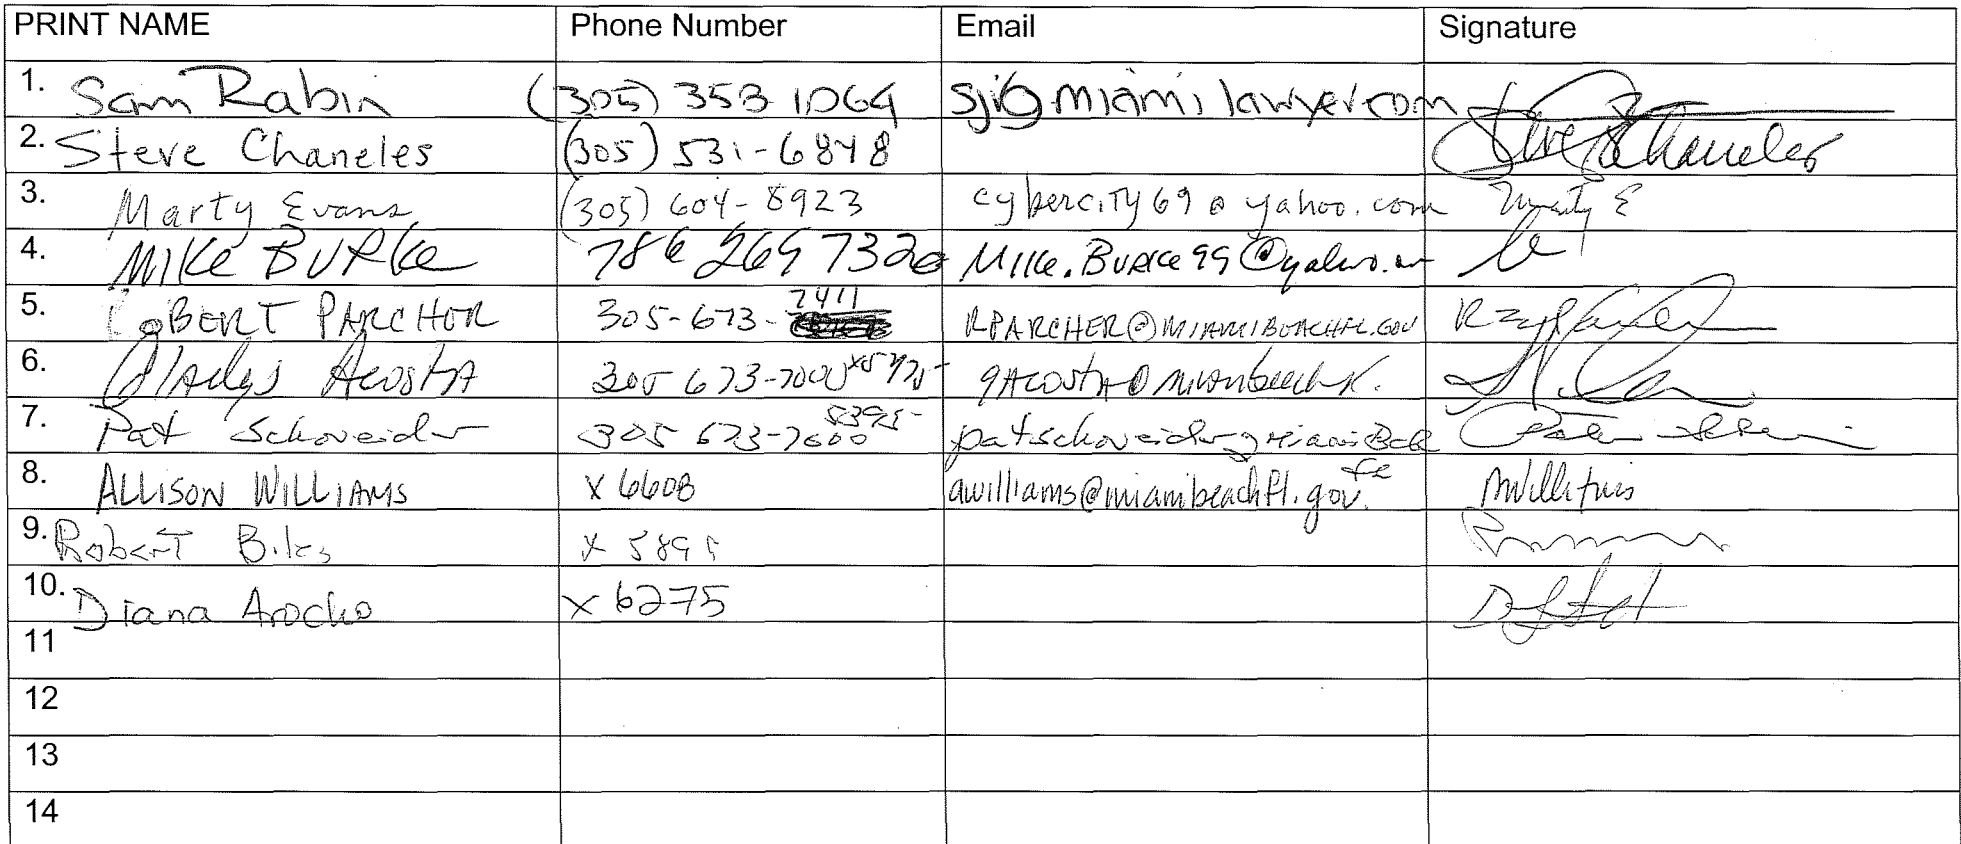 PRINT NAME Phone Number Email Signature
1. Sam Rabin (305) 353 1064 sjr@miamilawyer.com
2. Steve Chaneles (305) 531-6848 Steve Chaneles
3. Marty Evans (305) 604-8923 cybercity69@yahoo.com Marty E
4. MIKE BURKE 786 269 7320 MIKE.BURKE99@yahoo.
5. ROBERT PARCHER 305-673- 7411 RPARCHER@MIAMIBEACHFL.GOV
6. Gladys Acosta 305 673-7000
7. Pat Schoneider 305 673-7000
8. ALLISON WILLIAMS x 6608 awilliams@miamibeachfl.gov. AWilliams
9. Robert x 589
10. Diana Arocho x 6275
11
12
13
14